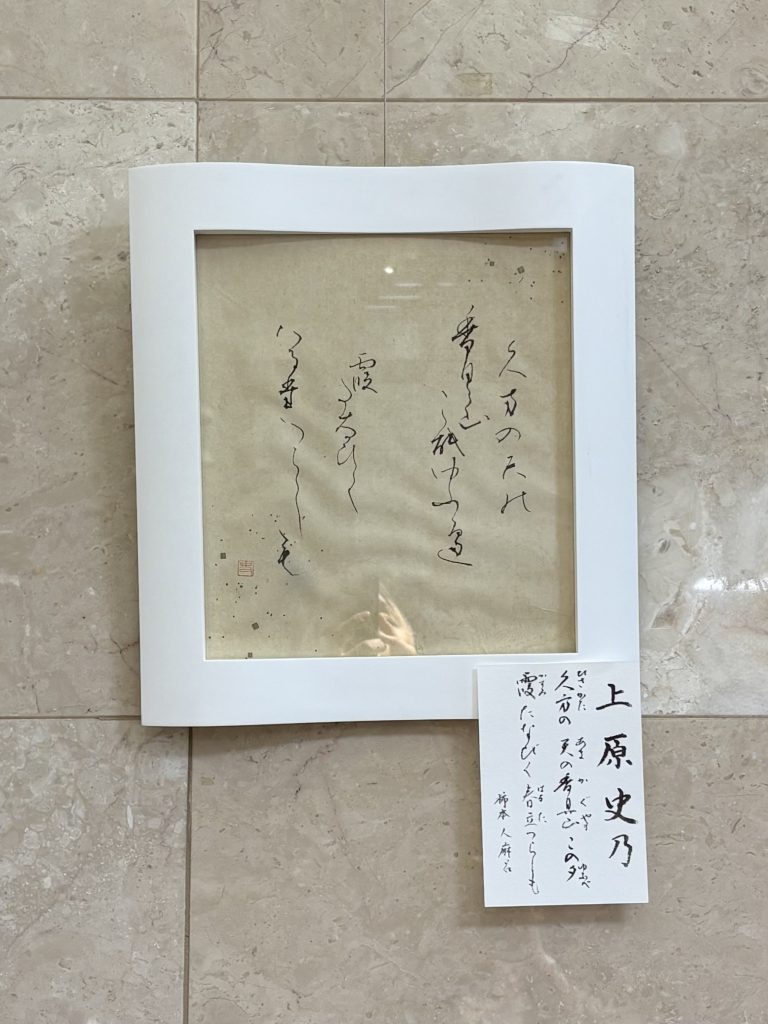 久方の天能
香具山
こ能ゆふ遍
霞
た奈ひく
はる堂つらし毛
上原史乃
ひさかた あま かぐやま ゆふべ
久方の 天の香具山 この夕
かすみ はるた
霞たなびく 春立つらしも
柿本人麻呂